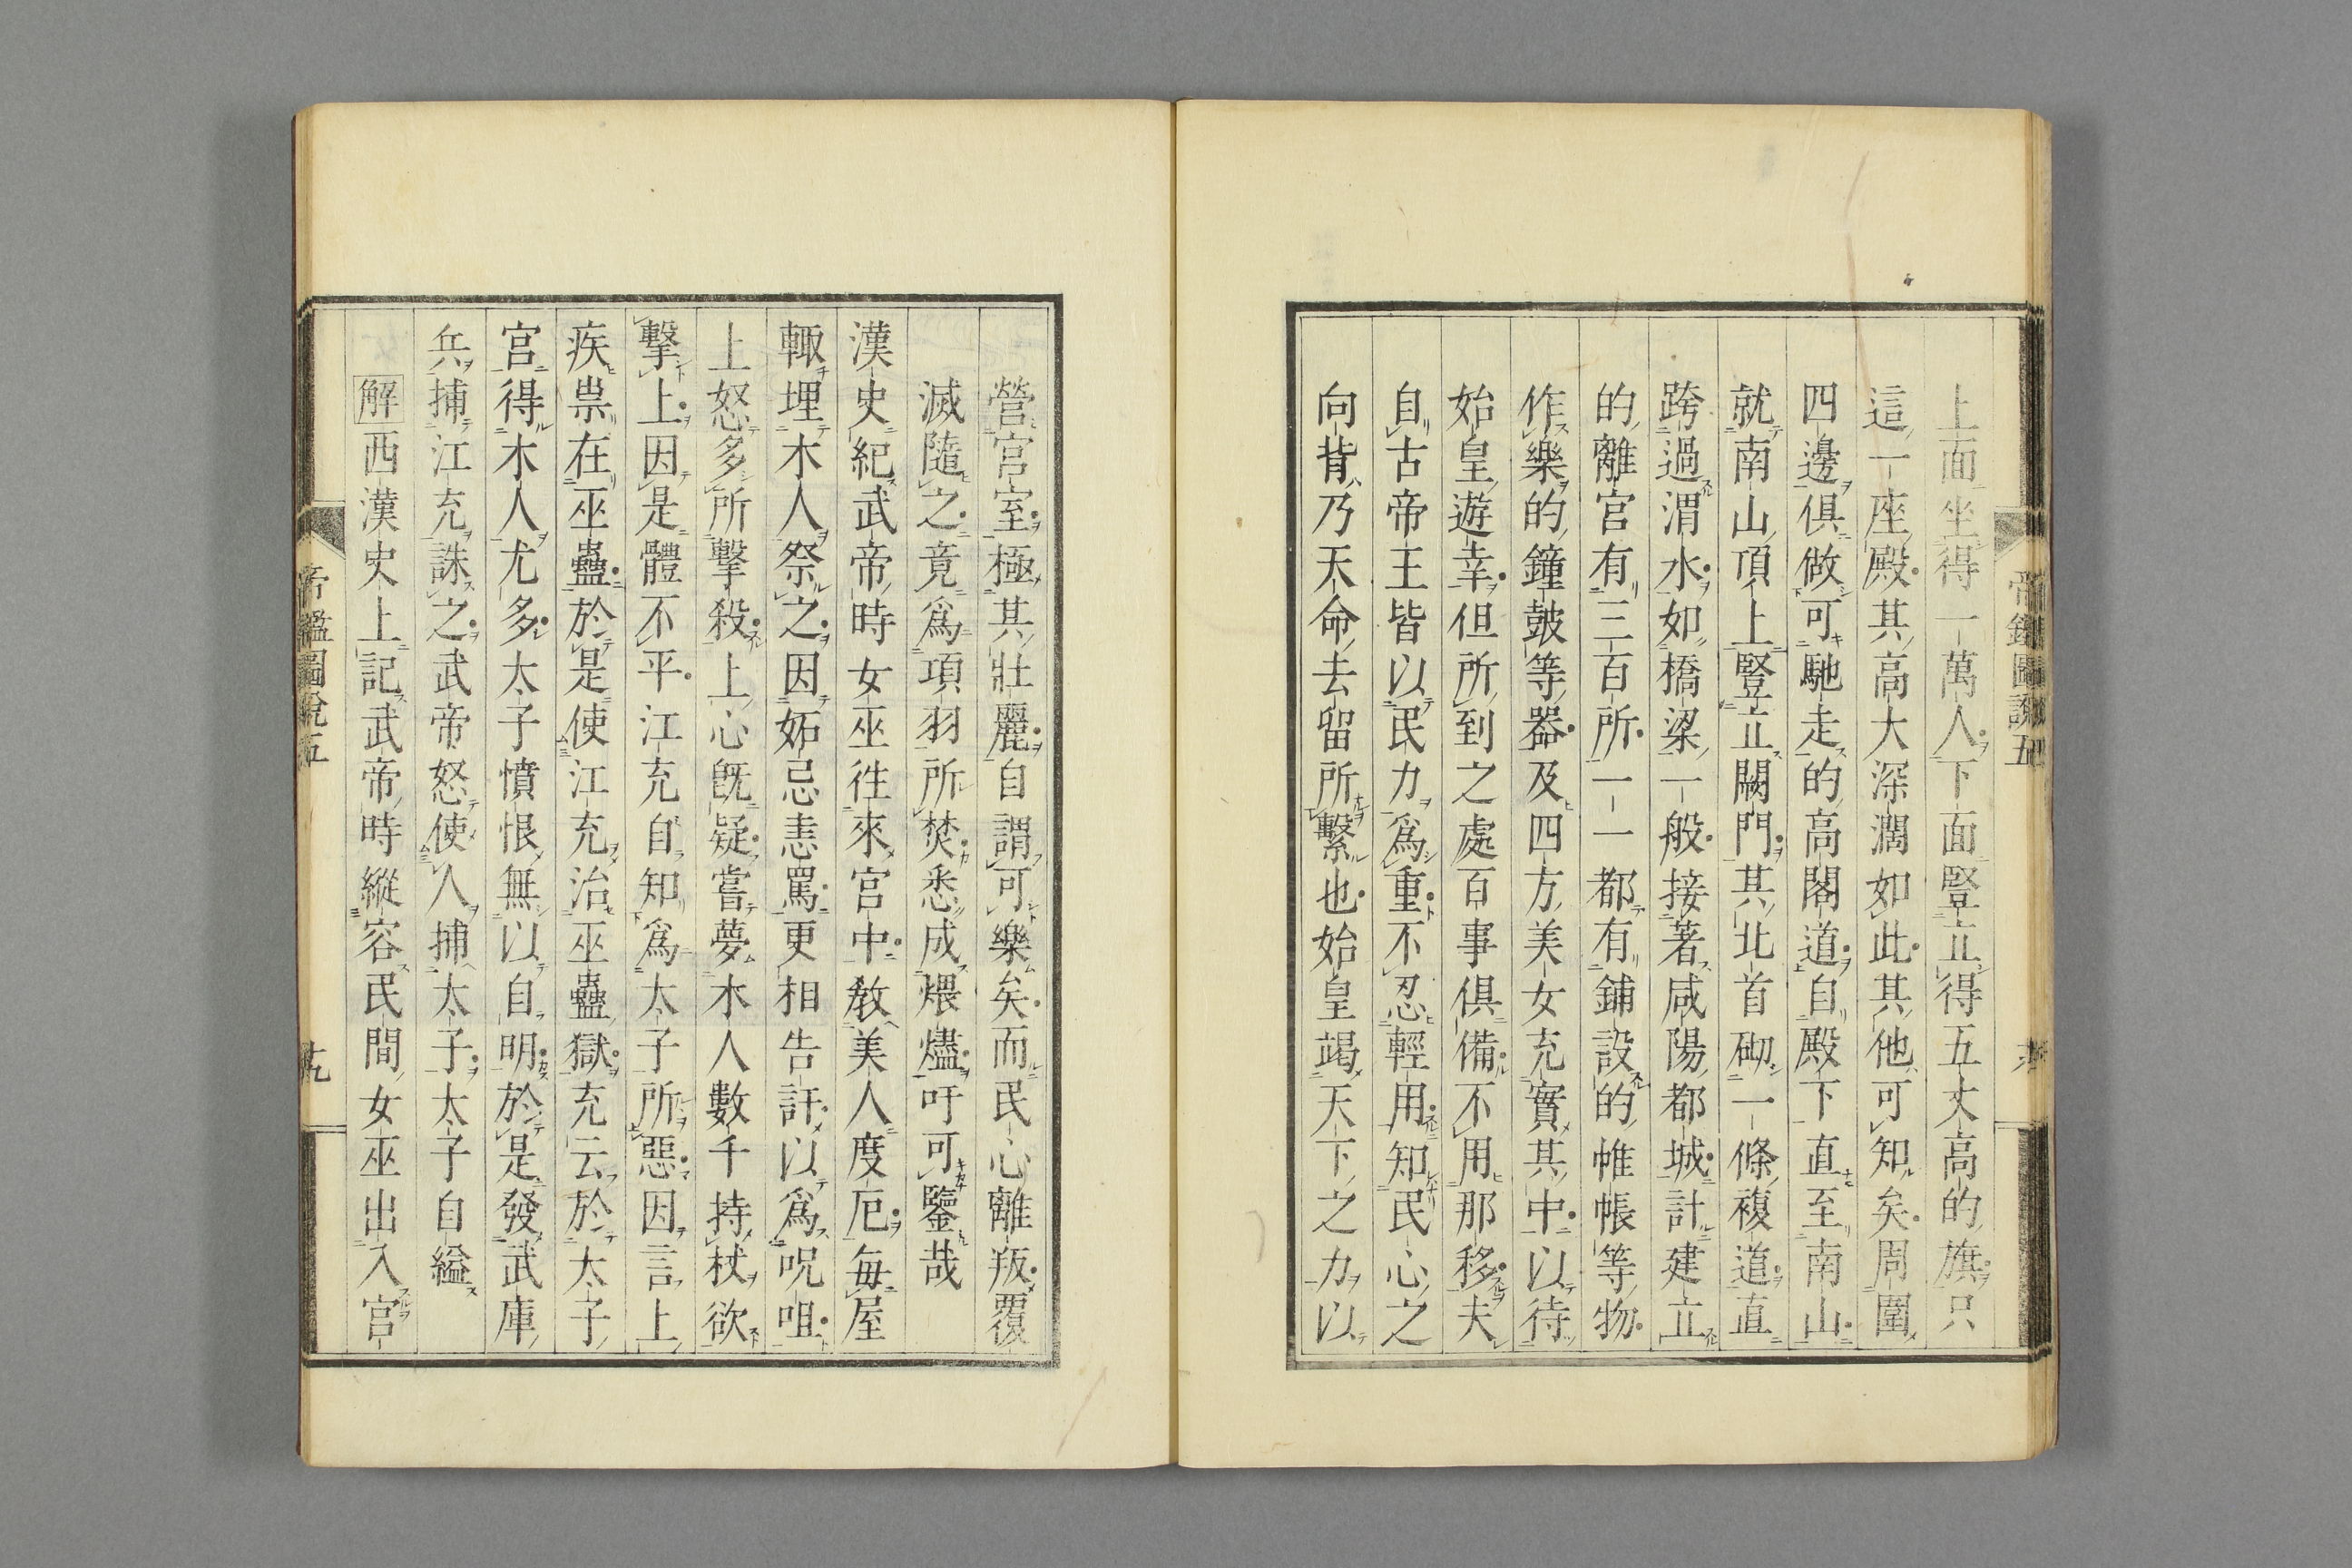 上面坐得一萬人下面豎立得五丈高的旗只
這一座殿其高大深濶如此其他可知矣周圍
四邊俱做可馳走的高閣道自殿下直至南山
就南山頂上豎立闕門其北首砌一條複道直
跨過渭水如橋梁一般接著咸陽都城計建立
的離宮有三百所一一都有鋪設的帷帳等物
作樂的鐘鼓等器及四方美女充實其中以待
始皇遊幸但所到之處百事俱備不用那移夫
自古帝王皆以民力爲重不忍輕用知民心之
向背乃天命去留所繫也始皇竭天下之力以
營宮室極其壯麗自謂可樂矣而民心離叛覆
滅隨之竟爲項羽所焚悉成煨燼吁可鑒哉
漢史紀武帝時女巫徃來宮中敎美人度厄每屋
輙埋木人祭之因妬忌恚罵更相告訐以爲呪咀
上怒多所擊殺上心旣疑嘗夢木人數千持杖欲
擊上因是體不平江充自知爲太子所惡因言上
疾祟在巫蠱於是使江充治巫蠱獄充云於太子
宮得木人尤多太子憤恨無以自明於是發武庫
兵捕江充誅之武帝怒使人捕太子太子自縊
解西漢史上記武帝時縱容民間女巫出入宮
帝鑑圖說五
十九